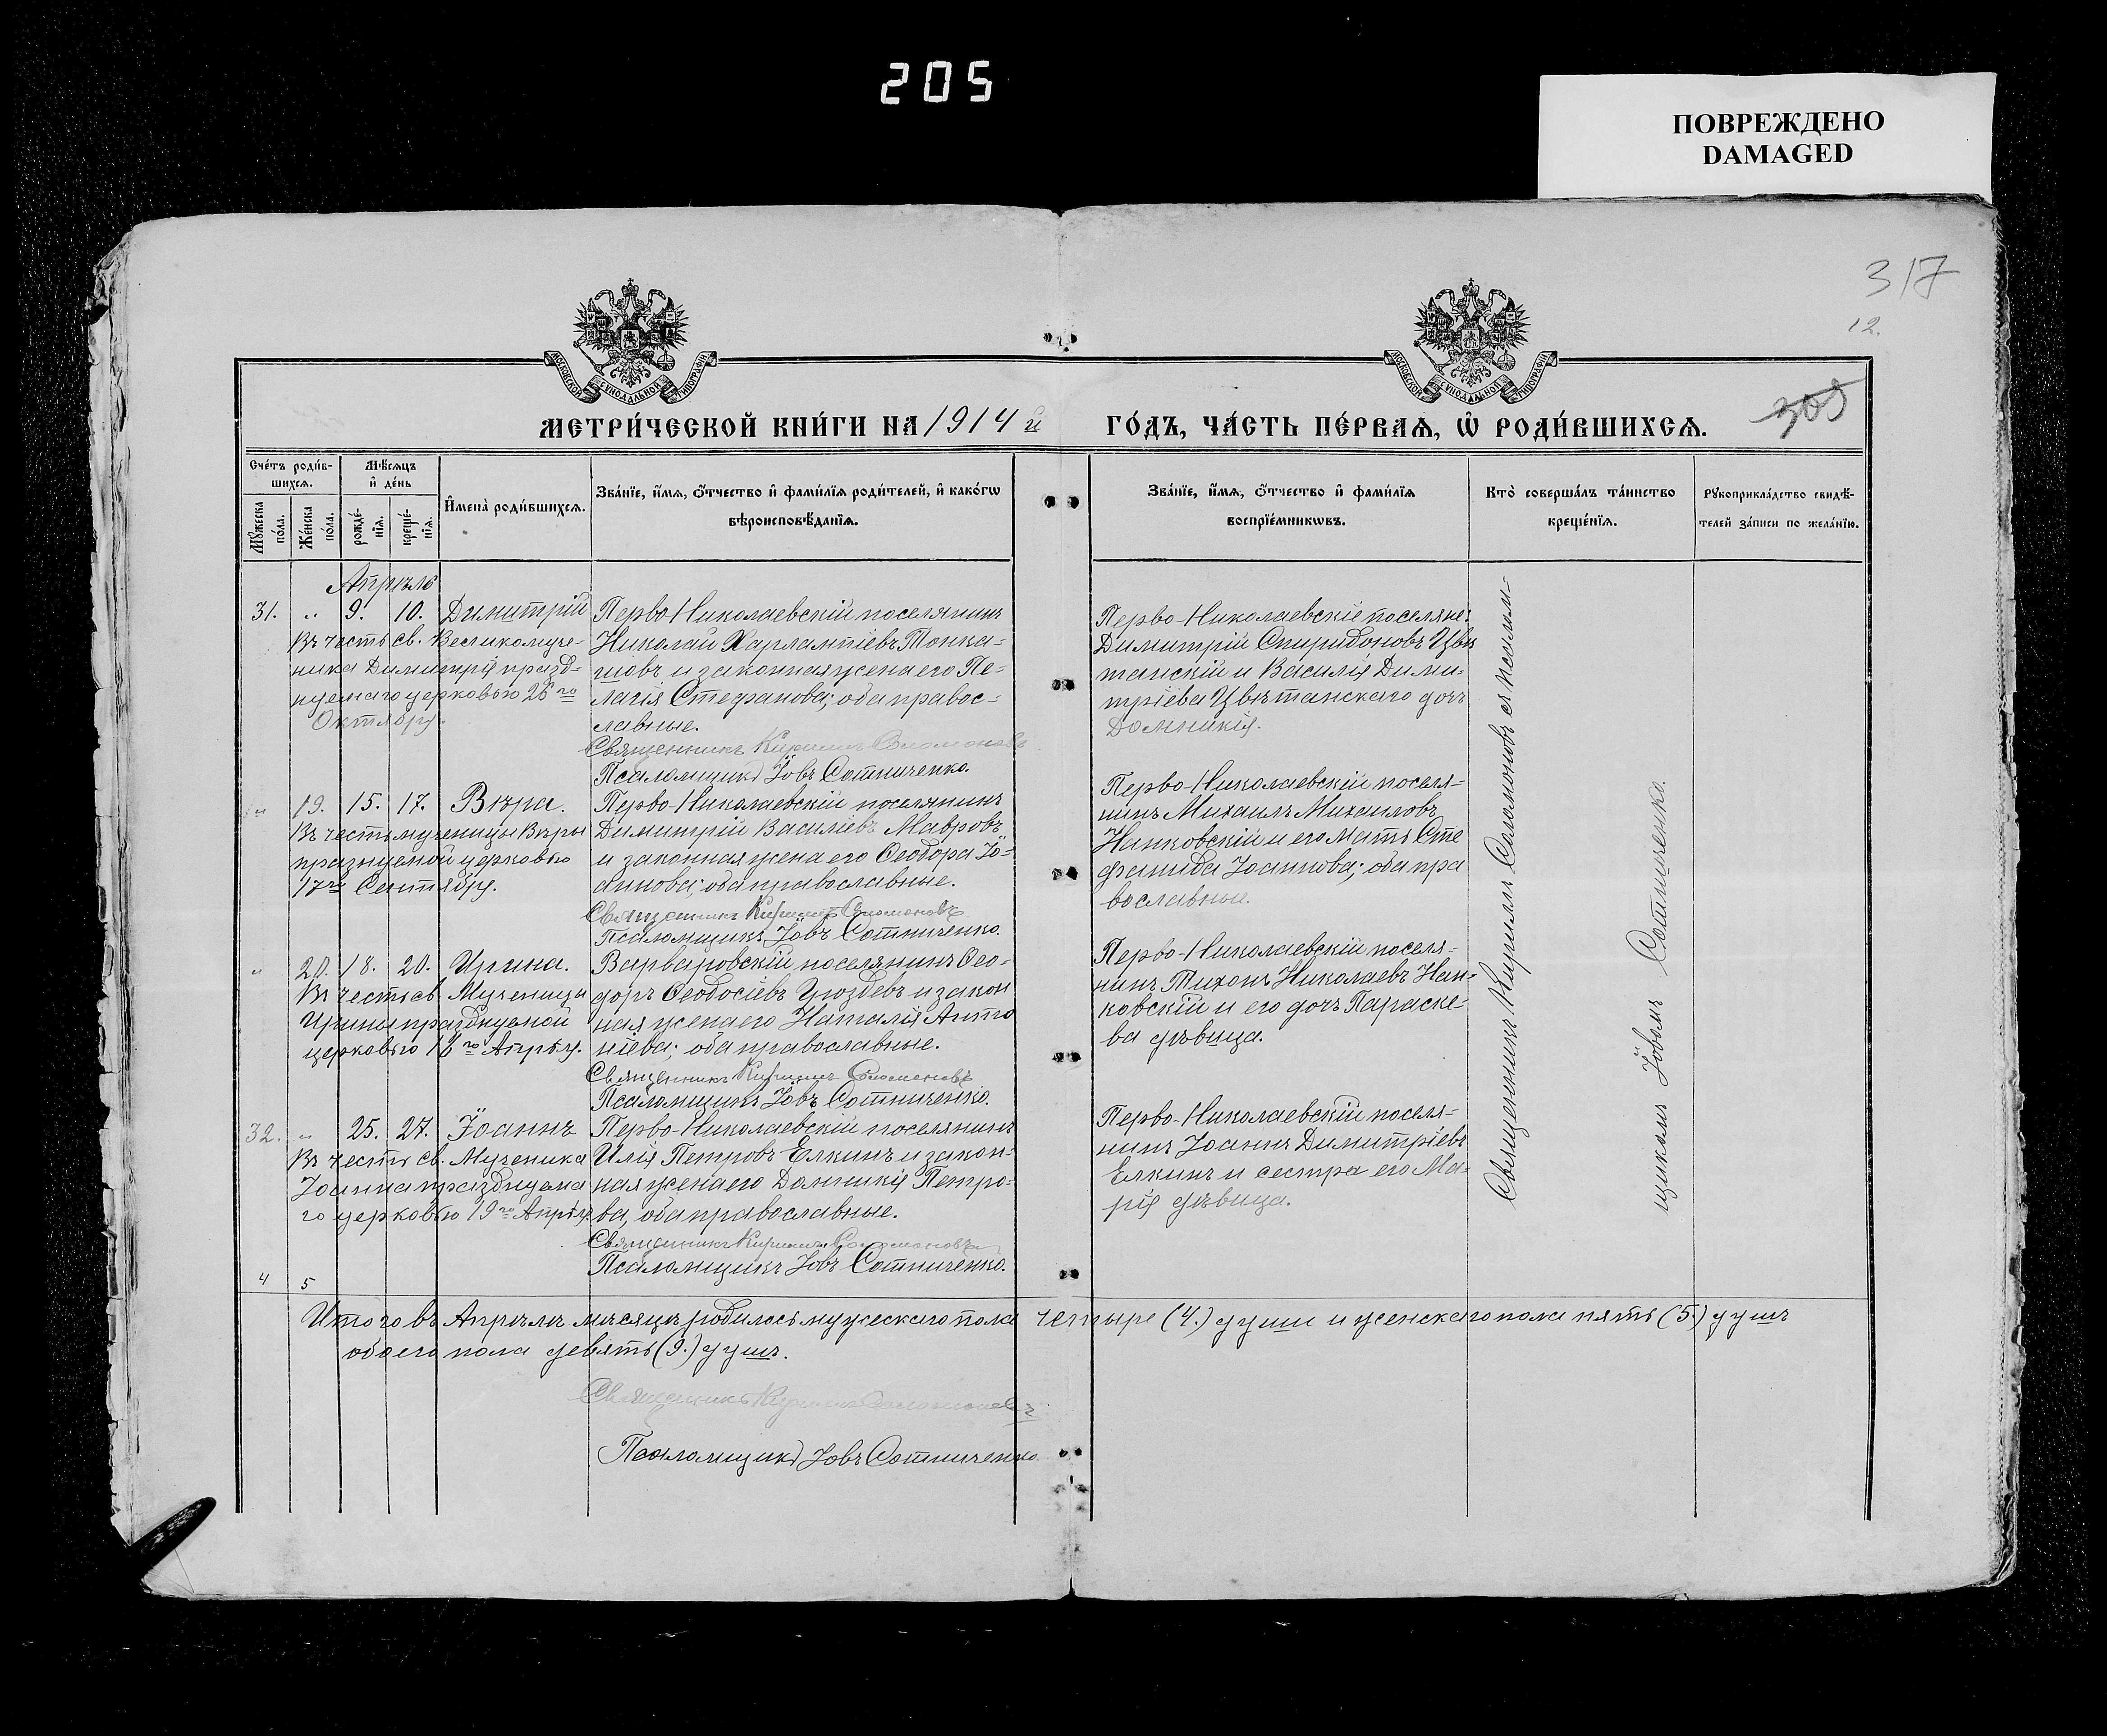 205
ПОВРЕЖДЕНО
DAMAGED
317
12.
МОСКОВСКОЙ СѴНОДАЛЬНОЙ ТИПОГРАФІИ
МОСКОВСКОЙ СѴНОДАЛЬНОЙ ТИПОГРАФІИ
МЕТРИ́ЧЕСКОЙ КНИ́ГИ НА 1914 й ГО́ДЪ, ЧА́СТЬ ПЕ́РВАѦ, Ѡ҆ РОДИ́ВШИХСѦ.
305
Сче́тъ роди́в-
шихсѧ.
Мѣ́сѧцъ
и҆ де́нь
Мꙋ́жеска по́ла.
Же́нска по́ла.
рожде́-
нїѧ.
креще́-
нїѧ.
И҆мена̀ роди́вшихсѧ.
Зва́нїе, и҆́мѧ, ѻ҆́тчество и҆ фами́лїѧ роди́телей, и҆ како́гѡ
вѣроисповѣ́данїѧ.
Зва́нїе, и҆́мѧ, ѻ҆́тчество и҆ фами́лїѧ
воспрїе́мникѡвъ.
Кто̀ соверша́лъ та́инство
креще́нїѧ.
Рꙋкоприкла́дство свидѣ́-
телей за́писи по жела́нїю.
Апрѣль
31. „ 9. 10. Димитрій
Въ честь св. Великомуче-
ника Димитрія празд-
нуемаго церковью 26го
Октября.
Перво-Николаевскій поселянинъ
Николай Харлампіевъ Тонка-
шовъ и законная жена его Пе-
лагія Стефанова; оба правос-
лавные.
Священникъ Кириллъ Соломоновъ
Псаломщикъ Іовъ Сотниченко.
Перво-Николаевскіе поселяне:
Димитрій Спиридоновъ Цвѣ
танскій и Василія Дими-
тріева Цвѣтанскаго дочь
Домникія.
„ 19. 15. 17. Вѣра.
Въ честь мученицы Вѣры
празнуемой церковью
17го Сентября.
Перво-Николаевскій поселянинъ
Димитрій Василіевъ Мавровъ
и законная жена его Ѳеодора Іо-
аннова; оба православные.
Священникъ Кириллъ Соломоновъ
Псаломщикъ Іовъ Сотниченко.
Перво-Николаевскій поселя-
нинъ Михаилъ Михаиловъ
Нанковскій и его мать Сте
фанида Іоаннова; оба пра
вославные.
„ 20. 18. 20. Ирина.
Въ честь св. Мученицы
Ирины празднуемой
церковью 16го Апрѣля.
Варваровскій поселянинъ Ѳео-
доръ Ѳеодосіевъ Гроздевъ и закон
ная жена его Наталія Анто
ніева; оба православные.
Священникъ Кириллъ Соломоновъ
Псаломщикъ Іовъ Сотниченко.
Перво-Николаевскій поселя-
нинъ Тихонъ Николаевъ Нан-
ковскій и его дочь Параске-
ва дѣвица.
32. „ 25. 27. Іоаннъ
Въ честь св. Мученика
Іоанна празднуема
го церковью 19го Апрѣля.
Перво-Николаевскій поселянинъ
Илія Петровъ Елкинъ и закон-
ная жена его Домникія Петро-
ва, оба православные.
Священникъ Кириллъ Соломоновъ
Псаломщикъ Іовъ Сотниченко.
Перво-Николаевскій поселя-
нинъ Іоаннъ Димитріевъ
Елкинъ и сестра его Ма-
рія дѣвица.
Священникъ Кириллъ Соломоновъ съ псалом-
щикомъ Іовомъ Сотниченко.
4 5
Итого въ Апрѣлѣ мѣсяцѣ родилось мужескаго пола четыре (4.) души и женскаго пола пять (5.) душъ
обоего пола девять (9.) душъ.
Священникъ Кириллъ Соломоновъ
Псаломщикъ Іовъ Сотниченко